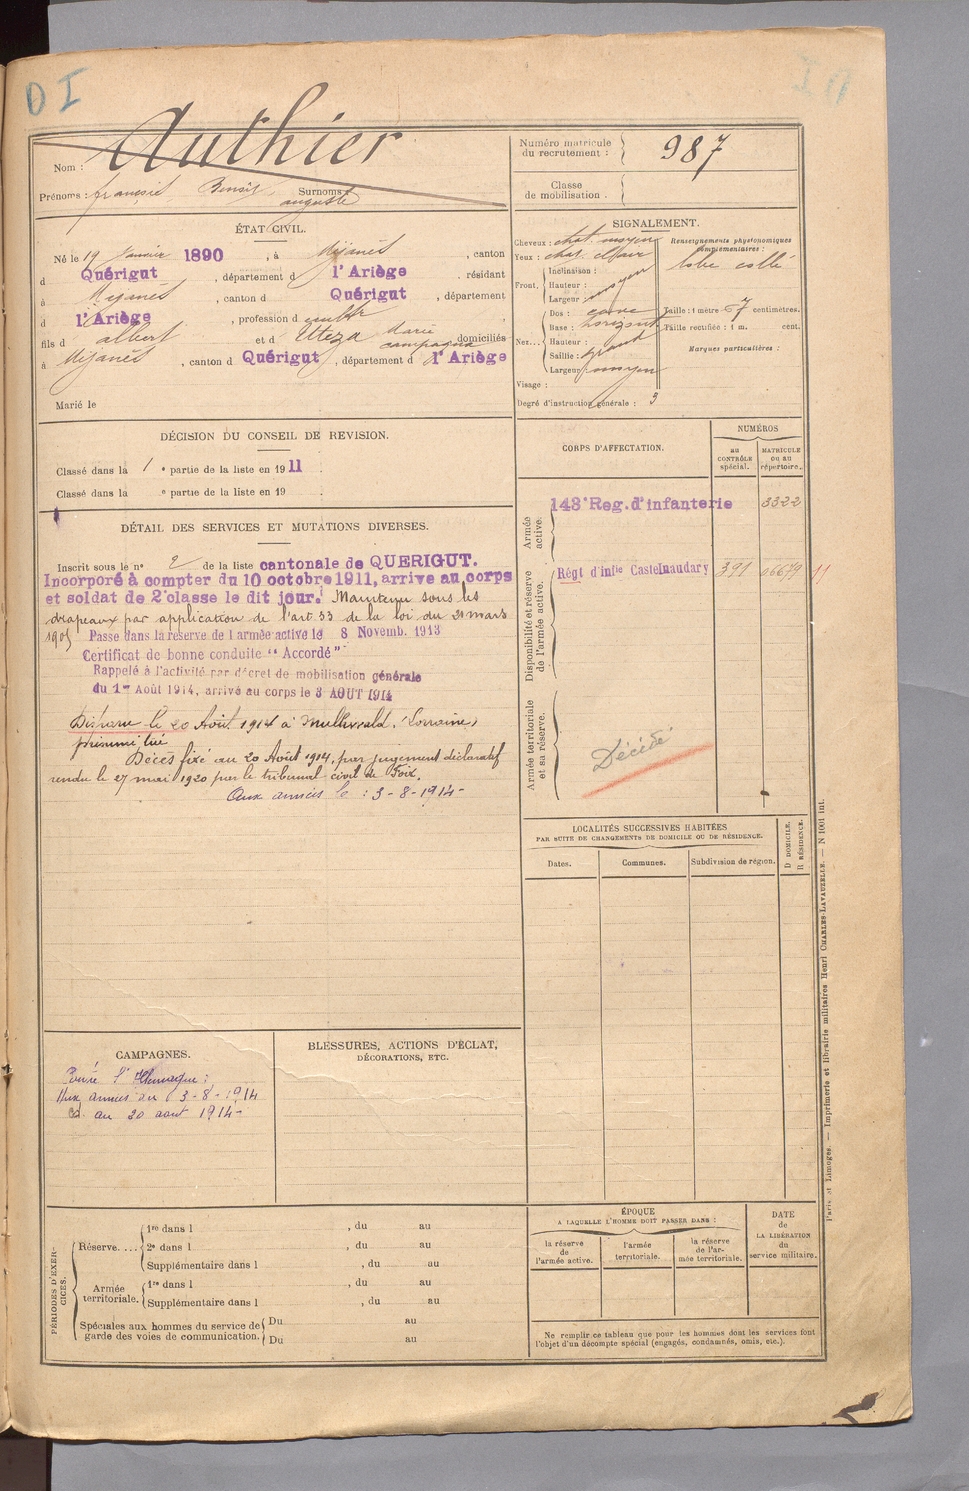 D I
Nom : Authier
Prénoms : françois Benoît Surnoms : auguste
Numéro matricule du recrutement : 987
Classe de mobilisation .
ÉTAT CIVIL.
Né le 19 Janvier 1890 , à Mijanès , canton
d Quérigut , département d l'Ariège , résidant
à Mijanès , canton d Quérigut , département
d l'Ariège , profession d cultr ,
fils d albert et d Uteza Marie campagna domiciliés
à Mijanès , canton d Quérigut , département d l'Ariège
Marié le
SIGNALEMENT.
Cheveux : chat. moyen
Yeux : chat. clair
Front, Inclinaison :
Hauteur : moyen
Largeur
Nez... Dos : cave
Base : horizont
Hauteur :
Saillie : grand
Largeur : moyen
Visage :
Degré d'instruction générale : 3
Renseignements physionomiques complémentaires :
lobe collé
Taille : 1 mètre 67 centimètres.
Taille rectifiée : 1 m. cent.
Marques particulières :
DÉCISION DU CONSEIL DE REVISION.
Classé dans la 1 e partie de la liste en 1911 .
Classé dans la e partie de la liste en 19 .
DÉTAIL DES SERVICES ET MUTATIONS DIVERSES.
Inscrit sous le n° 2 de la liste cantonale de QUERIGUT.
Incorporé à compter du 10 octobre 1911, arrive au corps
et soldat de 2e classe le dit jour. Maintenu sous les
drapeaux par application de l'art 33 de la loi du 21 mars
1905
Passé dans la réserve de l'armée active le 8 Novemb. 1913
Certificat de bonne conduite "Accordé"
Rappelé à l'activité par décret de mobilisation générale
du 1er Août 1914, arrivé au corps le 3 AOUT 1914
Disparu le 20 Août 1914 à Mulhwald. (Lorraine)
présumé tué
Décès fixé au 20 Août 1914, par jugement déclaratif
rendu le 27 mai 1920 par le tribunal civil de Foix.
Aux armées le : 3-8-1914-
CORPS D'AFFECTATION.
NUMÉROS
au CONTRÔLE spécial.
MATRICULE ou au répertoire.
Armée active.
143e Reg. d'infanterie 3322
Disponibilité et réserve de l'armée active.
Régt d'infie Castelnaudary 391 06679 11
Armée territoriale et sa réserve.
Décédé
LOCALITÉS SUCCESSIVES HABITÉES
PAR SUITE DE CHANGEMENTS DE DOMICILE OU DE RÉSIDENCE.
Dates. Communes. Subdivision de région.
D DOMICILE.
R RÉSIDENCE.
CAMPAGNES.
Contre l'Allemagne :
Aux armées du 3-8-1914
au 20 aout 1914-
BLESSURES, ACTIONS D'ÉCLAT,
DÉCORATIONS, ETC.
PÉRIODES D'EXERCICES.
Réserve.... 1re dans l , du au
2e dans l , du au
Supplémentaire dans l , du au
Armée territoriale. 1re dans l , du au
Supplémentaire dans l , du au
Spéciales aux hommes du service de garde des voies de communication. Du au
Du au
ÉPOQUE
A LAQUELLE L'HOMME DOIT PASSER DANS :
la réserve de l'armée active.
l'armée territoriale.
la réserve de l'armée territoriale.
DATE de LA LIBÉRATION du service militaire.
Ne remplir ce tableau que pour les hommes dont les services font
l'objet d'un décompte spécial (engagés, condamnés, omis, etc.).
Paris et Limoges. — Imprimerie et librairie militaires Henri CHARLES-LAVAUZELLE. — N 1001 int.